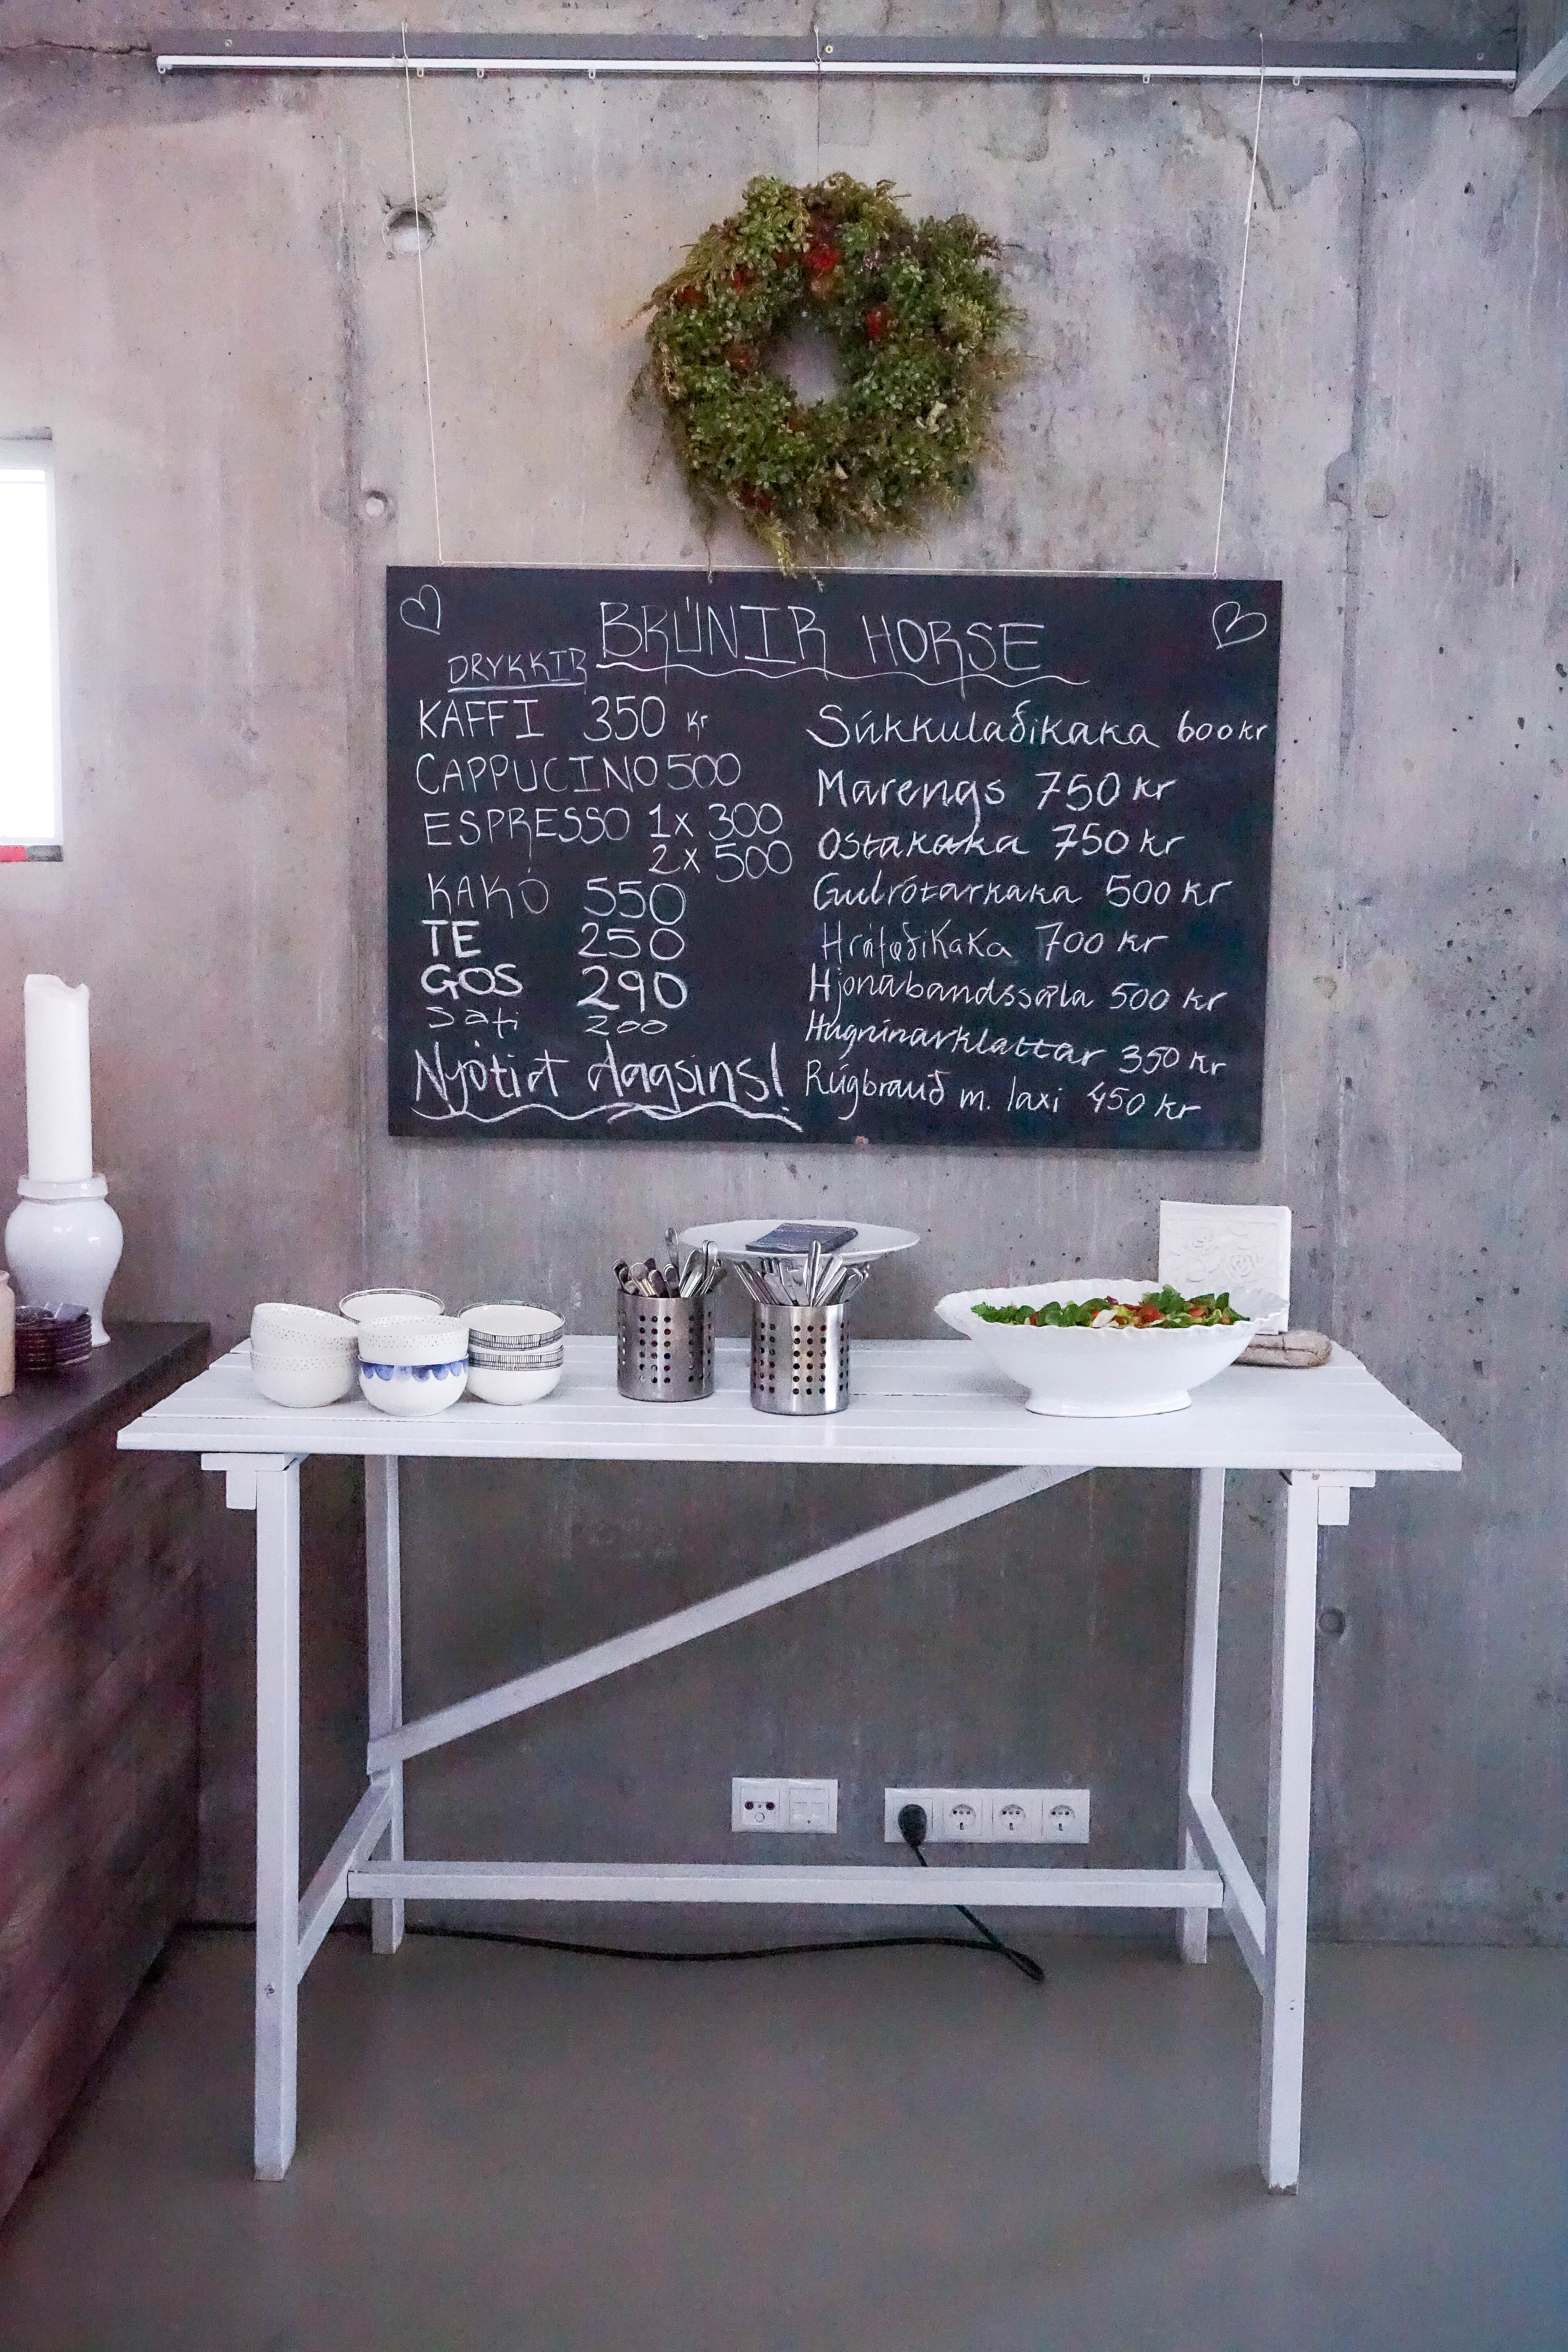 BRÚNIR HORSE
DRYKKIR
KAFFI 350 kr
CAPPUCINO 500
ESPRESSO 1x 300
2x 500
KAKÓ 550
TE 250
GOS 290
Safi 200
Njótið dagsins!
Súkkulaðikaka 600 kr
Marengs 750 kr
Ostakaka 750 kr
Gulrótarkaka 500 kr
Hráfæðikaka 700 kr
Hjónabandssæla 500 kr
350 kr
Rúgbrauð m. laxi 450 kr